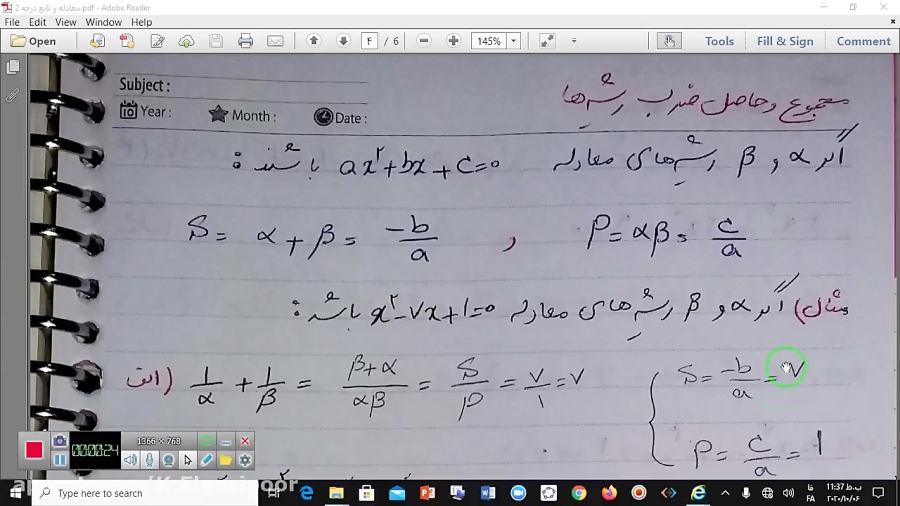 معادله و تابع درجه 2.pdf - Adobe Reader
File Edit View Window Help
Open ۴ / 6 145% Tools Fill & Sign Comment
Subject :
Year : Month : Date :
مجموع و حاصل ضرب ریشه‌ها
اگر α و β ریشه‌های معادله ax²+bx+c=0 باشند :
S = α + β = -b/a , P = αβ = c/a
مثال) اگر α و β ریشه‌های معادله x²-۷x+1=0 باشد :
الف) 1/α + 1/β = (β+α)/(αβ) = S/P = ۷/۱ = ۷
S = -b/a = ۷
P = c/a = 1
1366 × 768
00:00:24
Type here to search
FA فا
11:37 ب.ظ
۲۰۲۰/۱۰/۰۶